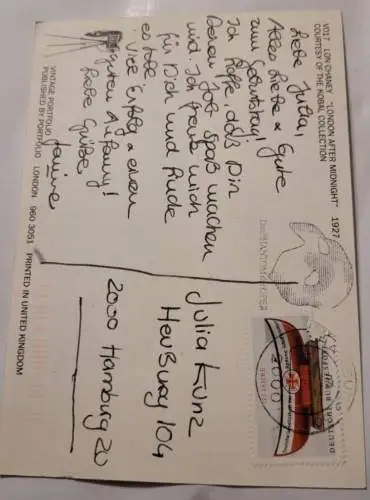 V017 LON CHANEY "LONDON AFTER MIDNIGHT" 1927
COURTESY OF THE KOBAL COLLECTION
Liebe Julia,
Alles Liebe & Gute
zum Geburtstag!
Ich hoffe, daß Dir
Deinen Job Spaß machen
wird. Ich freue mich
für Dich und Rüde
es tolle
. Viel Erfolg & einen
guten Anfang!
Liebe Grüße
Janine
VINTAGE PORTFOLIO
PUBLISHED BY PORTFOLIO LONDON 960 3051 PRINTED IN UNITED KINGDOM
Julia Kunz
Heußweg 104
2000 Hamburg 20
DAS PHANTOM DER OPER
2000